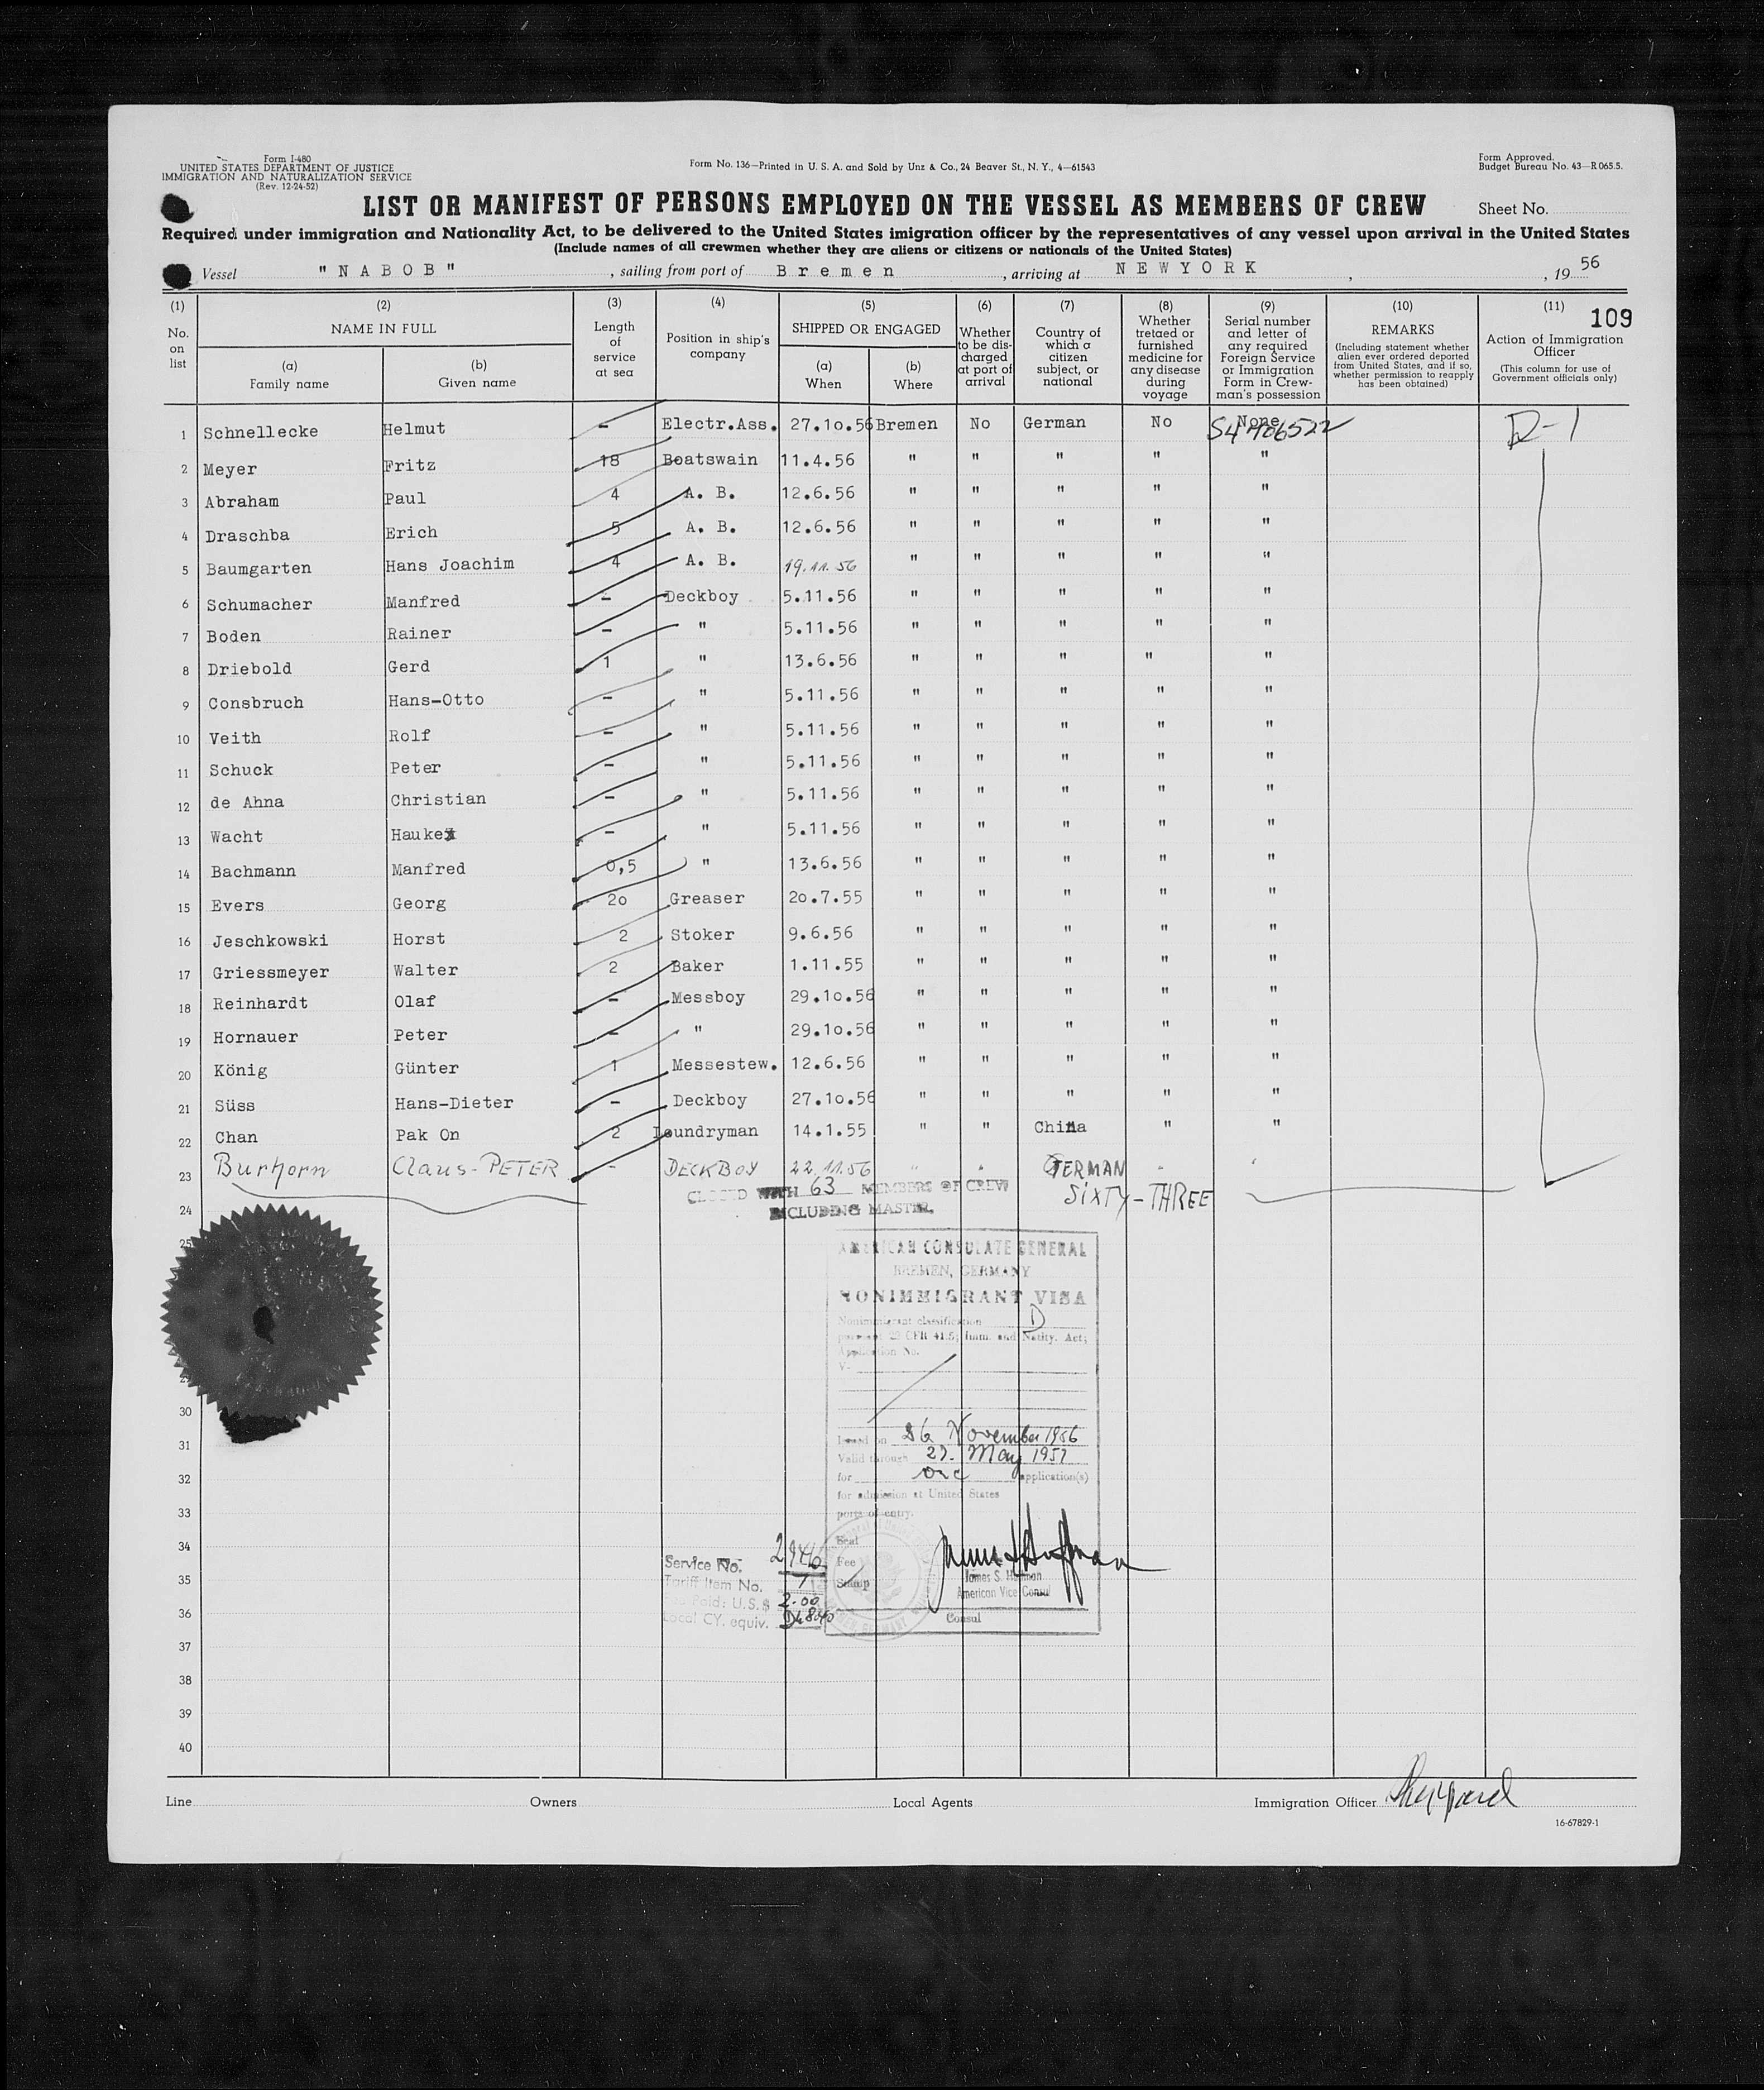 Form I-480
UNITED STATES DEPARTMENT OF JUSTICE
IMMIGRATION AND NATURALIZATION SERVICE
(Rev. 12-24-52)
Form No. 136—Printed in U. S. A. and Sold by Unz & Co., 24 Beaver St., N. Y., 4—61543
Form Approved.
Budget Bureau No. 43—R065.5.
LIST OR MANIFEST OF PERSONS EMPLOYED ON THE VESSEL AS MEMBERS OF CREW
Sheet No.
Required under immigration and Nationality Act, to be delivered to the United States imigration officer by the representatives of any vessel upon arrival in the United States
(Include names of all crewmen whether they are aliens or citizens or nationals of the United States)
Vessel "NABOB", sailing from port of Bremen, arriving at NEWYORK, , 19 56
(1) No. on list
(2) NAME IN FULL
(a) Family name
(b) Given name
(3) Length of service at sea
(4) Position in ship's company
(5) SHIPPED OR ENGAGED
(a) When
(b) Where
(6) Whether to be discharged at port of arrival
(7) Country of which a citizen subject, or national
(8) Whether tretaed or furnished medicine for any disease during voyage
(9) Serial number and letter of any required Foreign Service or Immigration Form in Crewman's possession
(10) REMARKS
(Including statement whether alien ever ordered deported from United States, and if so, whether permission to reapply has been obtained)
(11) 109
Action of Immigration Officer
(This column for use of Government officials only)
1 Schnellecke Helmut - Electr.Ass. 27.10.56 Bremen No German No None S4706522 D-1
2 Meyer Fritz 18 Boatswain 11.4.56 " " " " "
3 Abraham Paul 4 A. B. 12.6.56 " " " " "
4 Draschba Erich 5 A. B. 12.6.56 " " " " "
5 Baumgarten Hans Joachim 4 A. B. 19.11.56 " " " " "
6 Schumacher Manfred - Deckboy 5.11.56 " " " " "
7 Boden Rainer - " 5.11.56 " " " " "
8 Driebold Gerd 1 " 13.6.56 " " " " "
9 Consbruch Hans-Otto - " 5.11.56 " " " " "
10 Veith Rolf - " 5.11.56 " " " " "
11 Schuck Peter - " 5.11.56 " " " " "
12 de Ahna Christian - " 5.11.56 " " " " "
13 Wacht Hauke - " 5.11.56 " " " " "
14 Bachmann Manfred 0,5 " 13.6.56 " " " " "
15 Evers Georg 20 Greaser 20.7.55 " " " " "
16 Jeschkowski Horst 2 Stoker 9.6.56 " " " " "
17 Griessmeyer Walter 2 Baker 1.11.55 " " " " "
18 Reinhardt Olaf - Messboy 29.10.56 " " " " "
19 Hornauer Peter - " 29.10.56 " " " " "
20 König Günter 1 Messestew. 12.6.56 " " " " "
21 Süss Hans-Dieter - Deckboy 27.10.56 " " " " "
22 Chan Pak On 2 Loundryman 14.1.55 " " China " "
23 Burhorn Claus-PETER - DECKBOY 22.11.56 " " GERMAN " "
CLOSED WITH 63 MEMBERS OF CREW SIXTY-THREE
24
INCLUDING MASTER.
25
AMERICAN CONSULATE GENERAL
BREMEN, GERMANY
NONIMMIGRANT VISA
Nonimmigrant classification D
22 CFR 41.5; Imm. and Natlty. Act;
Application No.
V-
30
31
32
33
34
35
36
37
38
39
40
Issued on 26 November 1956
Valid through 27. May 1957
for one application(s)
for admission at United States
ports of entry.
Seal
Fee
Stamp
James S. Hoffman
American Vice Consul
Consul
Service No. 2946
Tariff Item No. 7
Fee Paid: U.S.$ 2.00
Local CY. equiv.
Line
Owners
Local Agents
Immigration Officer Sheppard
16-67829-1